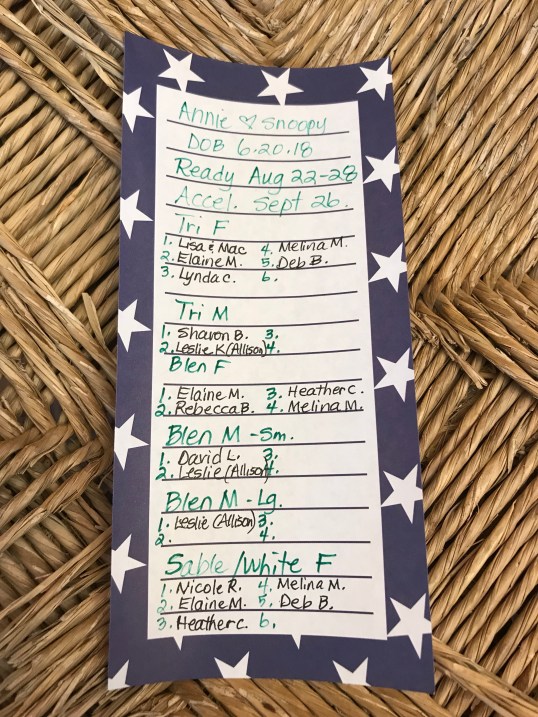 Annie ♡ Snoopy
DOB 6.20.18
Ready Aug 22-28
Accel. Sept 26.
Tri F
1. Lisa & Mac 4. Melina M.
2. Elaine M. 5. Deb B.
3. Lynda C. 6.
Tri M
1. Sharon B. 3.
2. Leslie K (Allison) 4.
Blen F
1. Elaine M. 3. Heather C.
2. Rebecca B. 4. Melina M.
Blen M - Sm.
1. David L. 3.
2. Leslie (Allison) 4.
Blen M - Lg.
1. Leslie (Allison) 3.
2. 4.
Sable/White F
1. Nicole R. 4. Melina M.
2. Elaine M. 5. Deb B.
3. Heather C. 6.